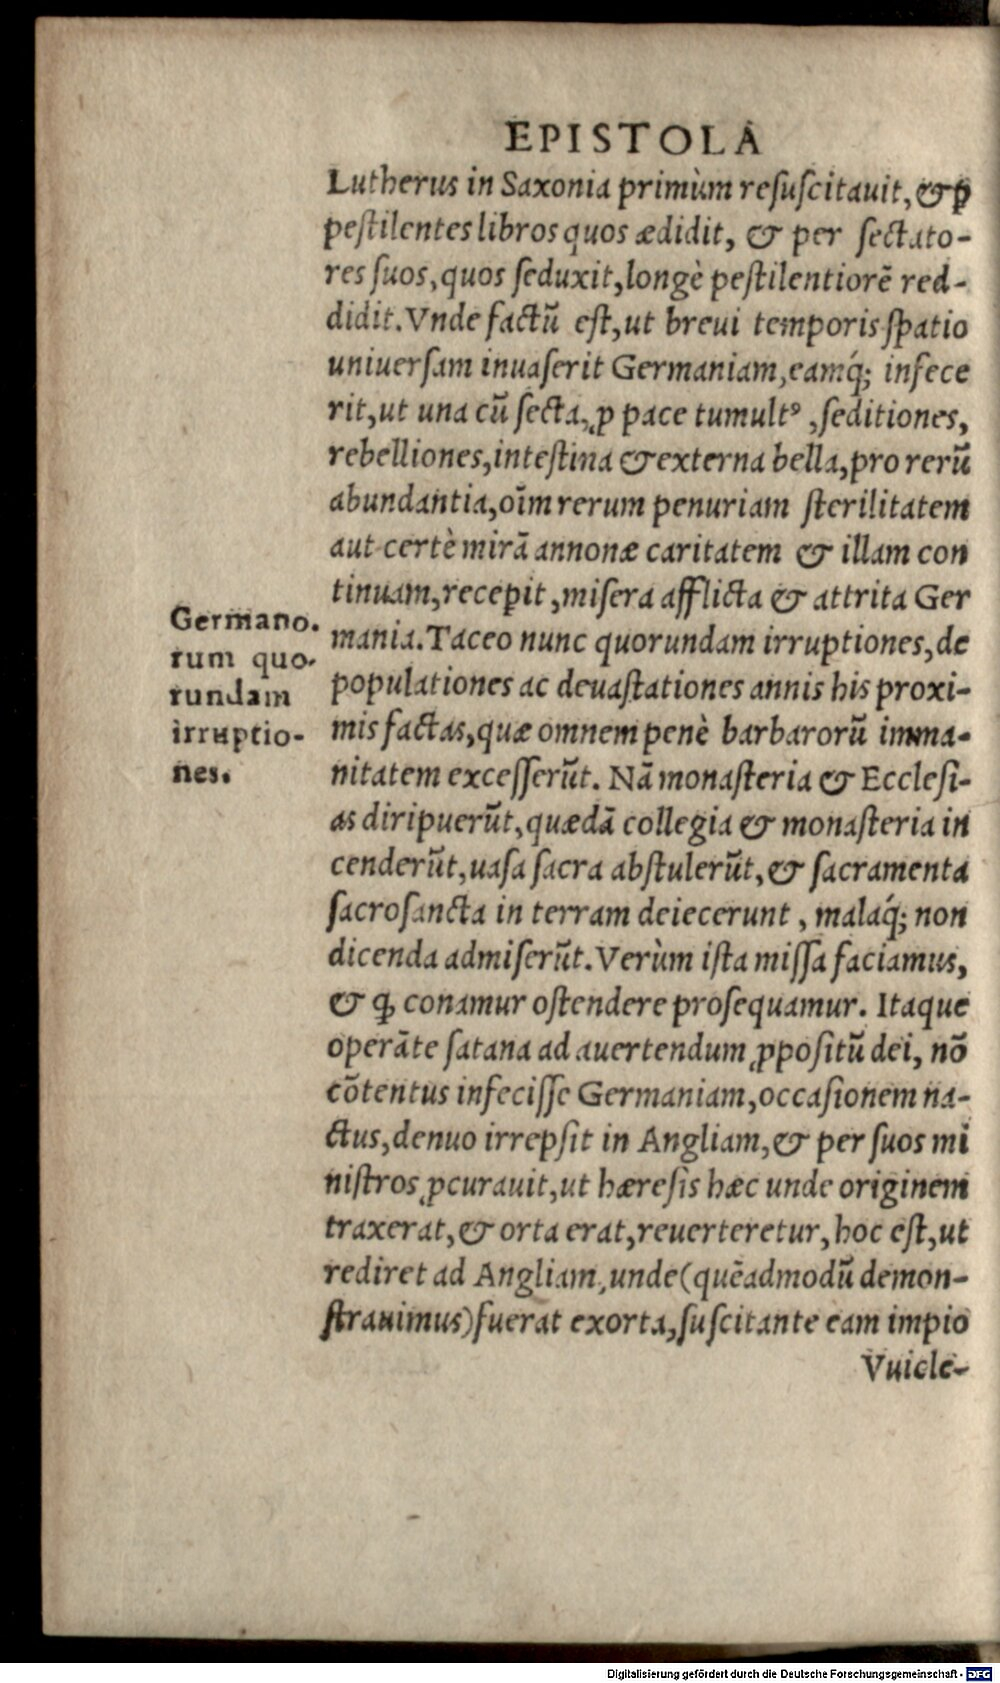 EPISTOLA
Lutherus in Saxonia primùm resuscitauit, & ꝑ
pestilentes libros quos ædidit, & per sectato-
res suos, quos seduxit, longè pestilentiorē red-
didit. Vnde factū est, ut breui temporis spatio
uniuersam inuaserit Germaniam, eamq́; infece
rit, ut una cū secta, ꝓ pace tumultꝰ, seditiones,
rebelliones, intestina & externa bella, pro rerū
abundantia, oīm rerum penuriam sterilitatem
aut certè mirā annonæ caritatem & illam con
tinuam, recepit, misera afflicta & attrita Ger
mania. Taceo nunc quorundam irruptiones, de
populationes ac deuastationes annis his proxi-
mis factas, quæ omnem penè barbarorū imma-
nitatem excesserūt. Nā monasteria & Ecclesi-
as diripuerūt, quædā collegia & monasteria in
cenderūt, uasa sacra abstulerūt, & sacramenta
sacrosancta in terram deiecerunt, malaq́; non
dicenda admiserūt. Verùm ista missa faciamus,
& ꝙ conamur ostendere prosequamur. Itaque
operāte satana ad auertendum ꝓpositū dei, nō
cōtentus infecisse Germaniam, occasionem na-
ctus, denuo irrepsit in Angliam, & per suos mi
nistros ꝓcurauit, ut hæresis hæc unde originem
traxerat, & orta erat, reuerteretur, hoc est, ut
rediret ad Angliam, unde (quēadmodū demon-
strauimus) fuerat exorta, suscitante eam impio
Vuicle-
Germano-
rum quo-
rundam
irruptio-
nes.
Digitalisierung gefördert durch die Deutsche Forschungsgemeinschaft - DFG